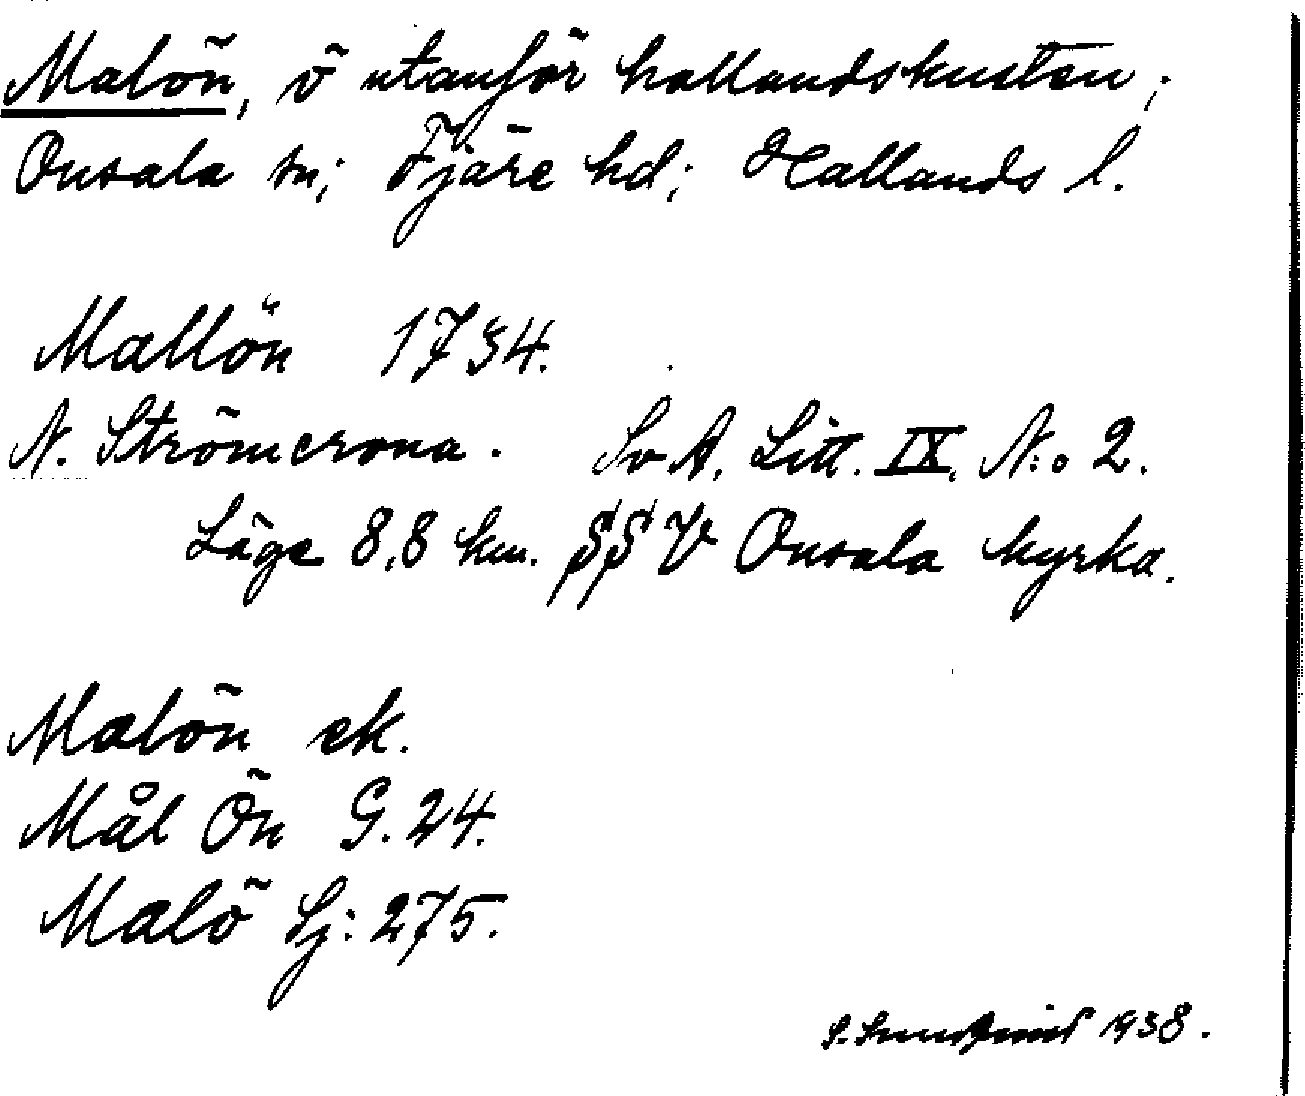 Malön, ö utanför hallandskusten;
Onsala sn; Fjäre hd; Hallands l.
Mallön 1734.
N. Strömcrona. SvA, Litt. IX, N:o 2.
Läge 8,8 km. SSV Onsala kyrka.
Malön ek.
Mål Ön G. 24.
Malö Sj: 275.
S. Sundqvist 1938.